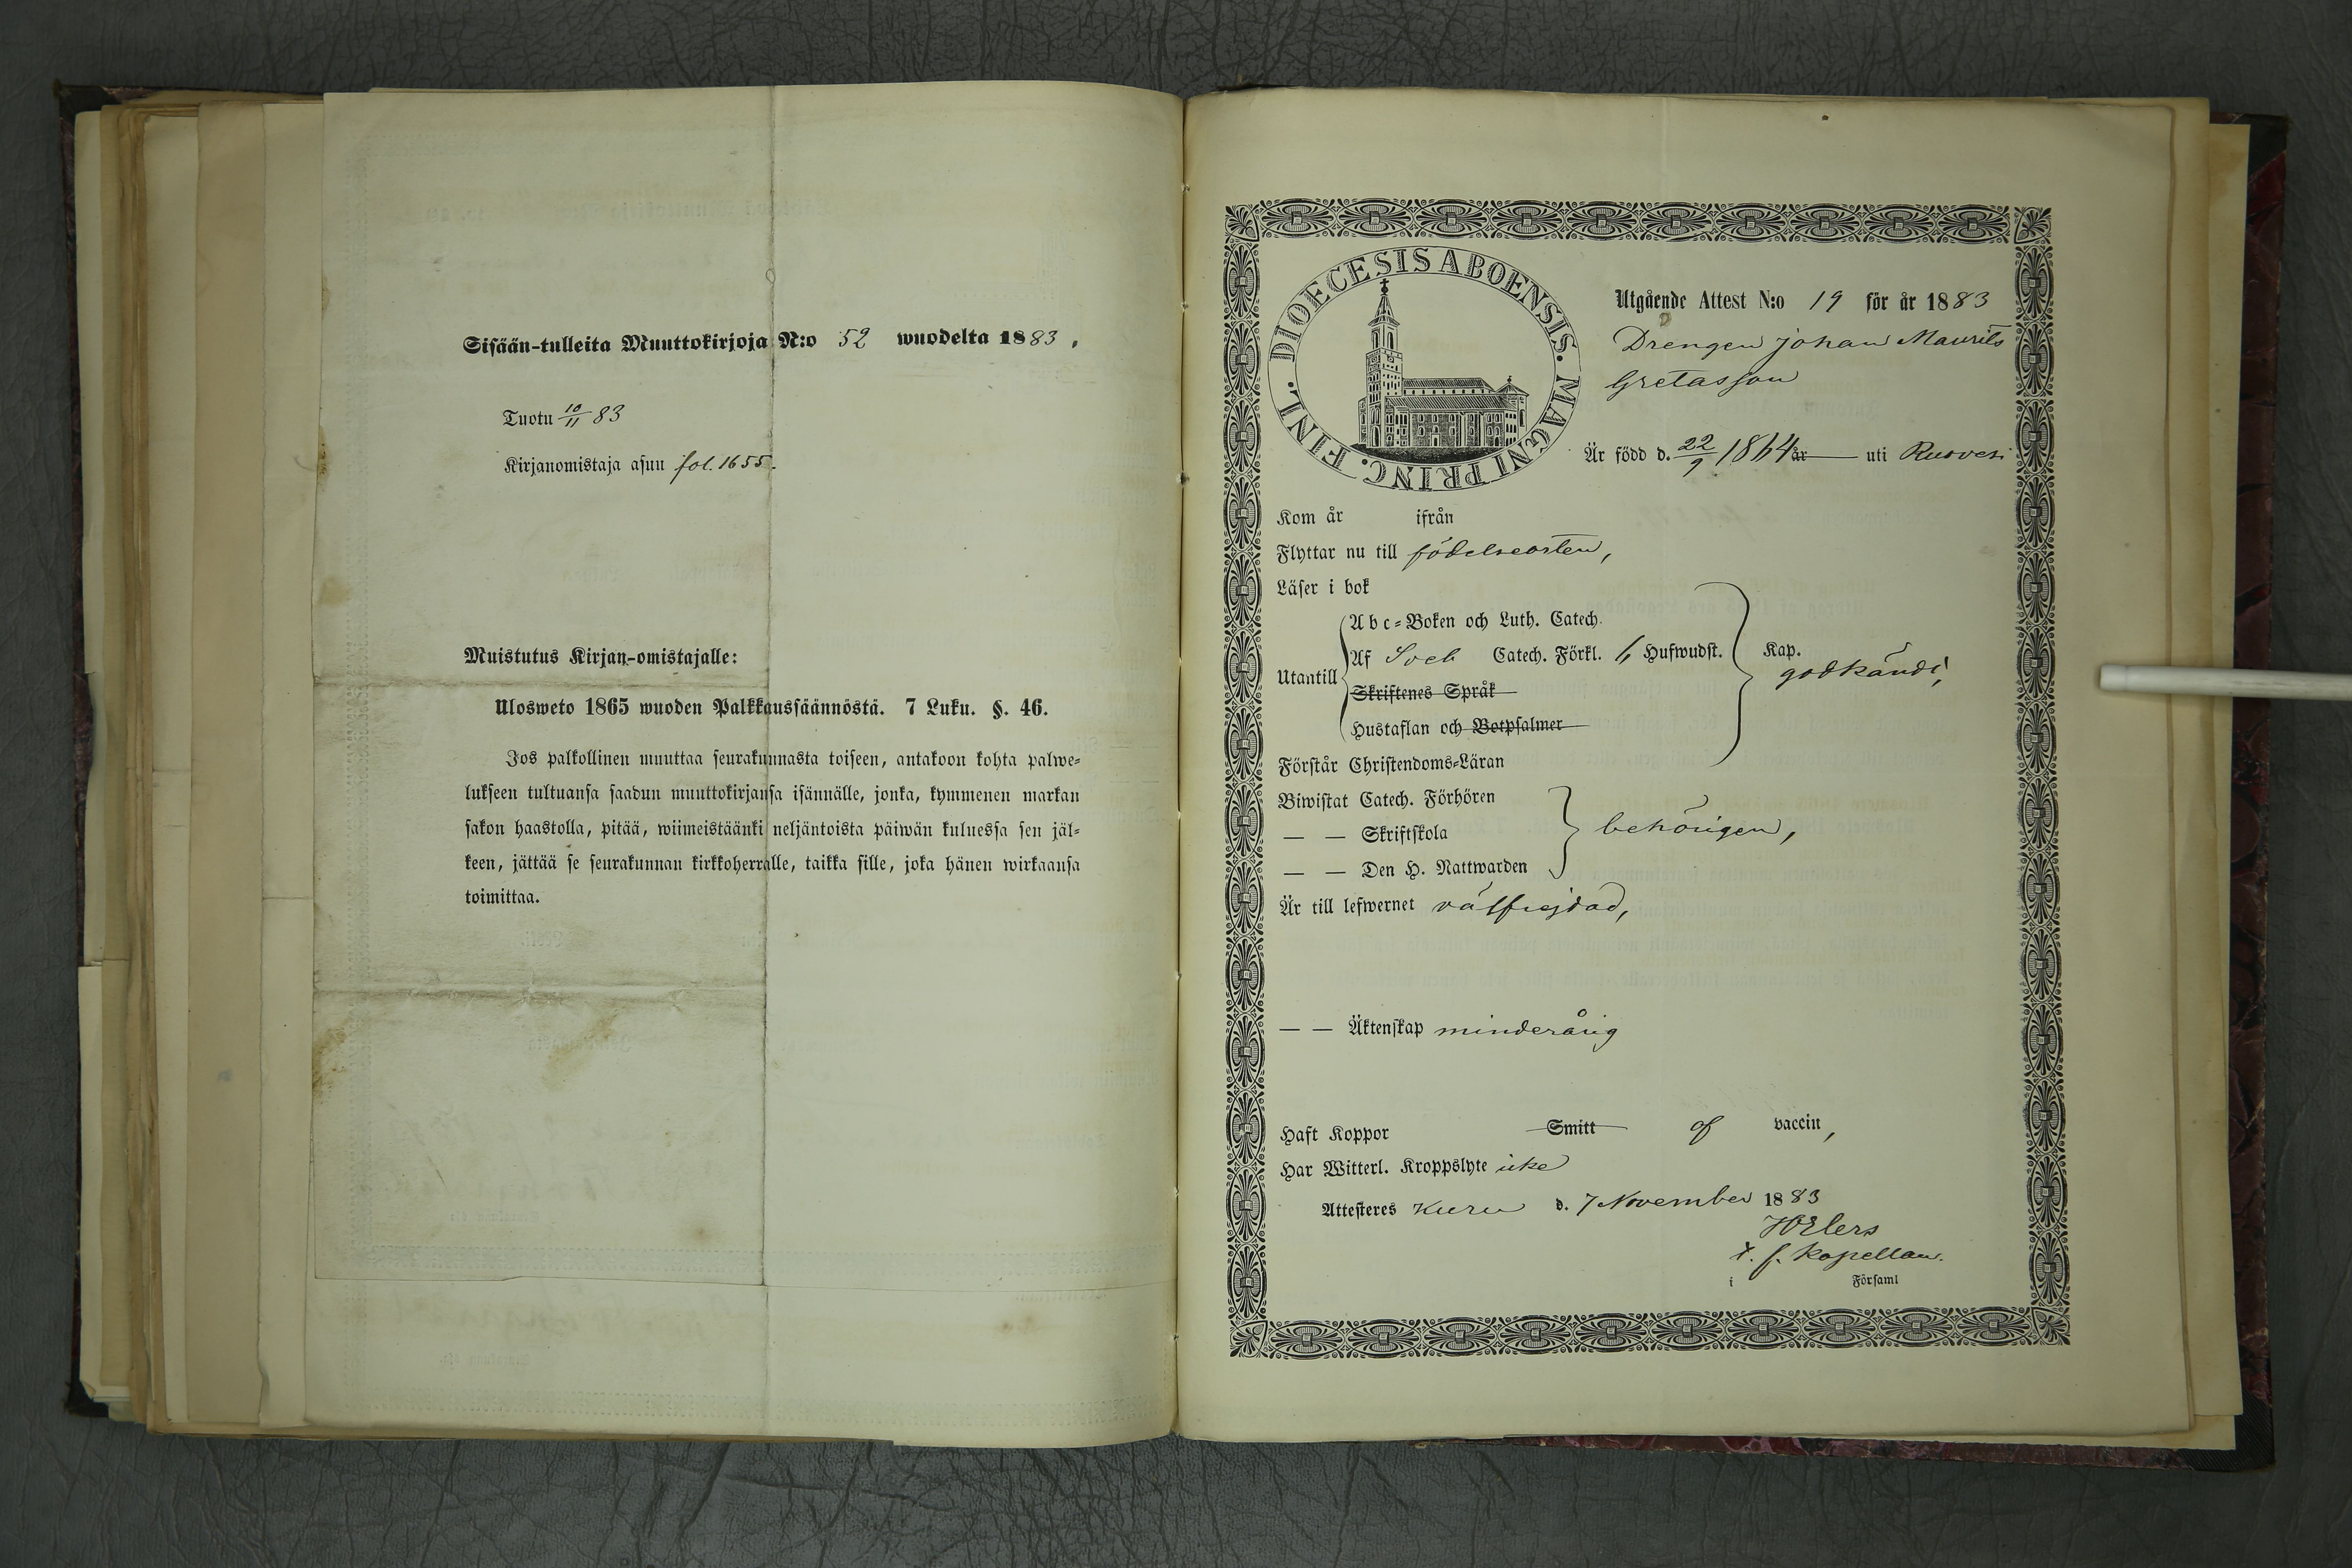 Sisään-tulleita Muuttokirjoja N:o 52 wuodelta 1883,
Tuotu 10/11 83
Kirjanomistaja asuu fol. 1655.
Muistutus Kirjan-omistajalle:
Ulosweto 1865 wuoden Palkkaussäännöstä. 7 Luku. §. 46.
Jos palkollinen muuttaa seurakunnasta toiseen, antakoon kohta palwe-
lukseen tultuansa saadun muuttokirjansa isännälle, jonka, kymmenen markan
sakon haastolla, pitää, wiimeistäänki neljäntoista päiwän kuluessa sen jäl-
keen, jättää se seurakunnan kirkkoherralle, taikka sille, joka hänen wirkaansa
toimittaa.
DIOECESIS ABOENSIS. MAGNI PRINC. FINL.
Utgående Attest N:o 19 för år 1883
Drengen Johan Maurits
Gretasson
Är född d. 22/9 1864 år uti Ruovesi
Kom år ifrån
Flyttar nu till födelseorten,
Läser i bok
Abc-Boken och Luth. Catech.
Utantill
Af Sveb Catech. Förkl. Hufwudst.
Skriftenes Språk
Hustaflan och Botpsalmer
Kap.
godkändt,
Förstår Christendoms-Läran
Biwistat Catech. Förhören
— — Skriftskola
— — Den H. Nattwarden
behörigen,
Är till lefwernet välfrejdad,
— — Äktenskap minderårig
Haft Koppor Smitt af vaccin,
Har Witterl. Kroppslyte icke
Attesteres Kuru d. 7 November 1883
Elers
t. f. Kapellan.
i Församl